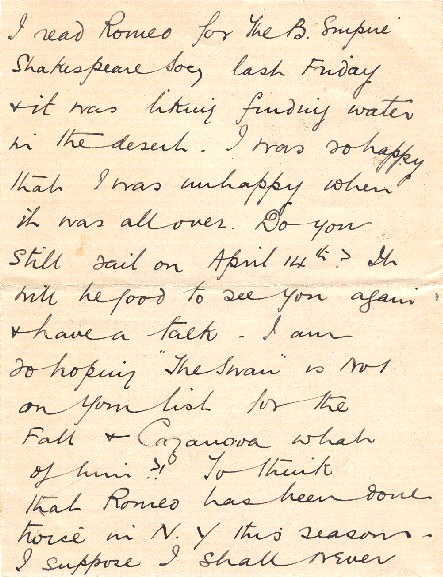 I read Romeo for The B. Empire
Shakespeare Socy last Friday
& it was liking finding water
in the desert. I was so happy
that I was unhappy when
it was all over. Do you
still sail on April 14th? It
will be good to see you again
& have a talk - I am
so hoping "The Swan" is not
on your list for the
Fall & Cazanova what
of him?! To think
that Romeo has been done
twice in N. Y this season -
I suppose I shall never